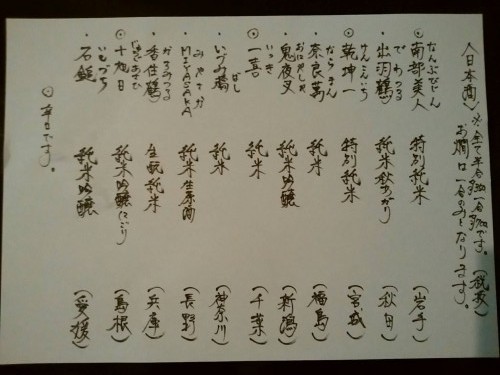 〈日本酒〉
※全て半合 一合 です。(税抜)
お燗は一合のみとなります。
なんぶびじん
◎南部美人 特別純米 (岩手)
でわつる
・出羽鶴 純米秋あがり (秋田)
けんこんいち
◎乾坤一 特別純米 (宮城)
ならまん
・奈良萬 純米 (福島)
おにやしゃ
・鬼夜叉 純米吟醸 (新潟)
いっき
◎一喜 純米 (千葉)
ばし
・いづみ橋 純米 (神奈川)
みやさか
・MIYASAKA 純米生原酒 (長野)
かすみつる
・香住鶴 生酛純米 (兵庫)
じゅうじあさひ
◎十旭日 純米吟醸にごり (島根)
いしづち
・石鎚 純米吟醸 (愛媛)
◎辛口です。